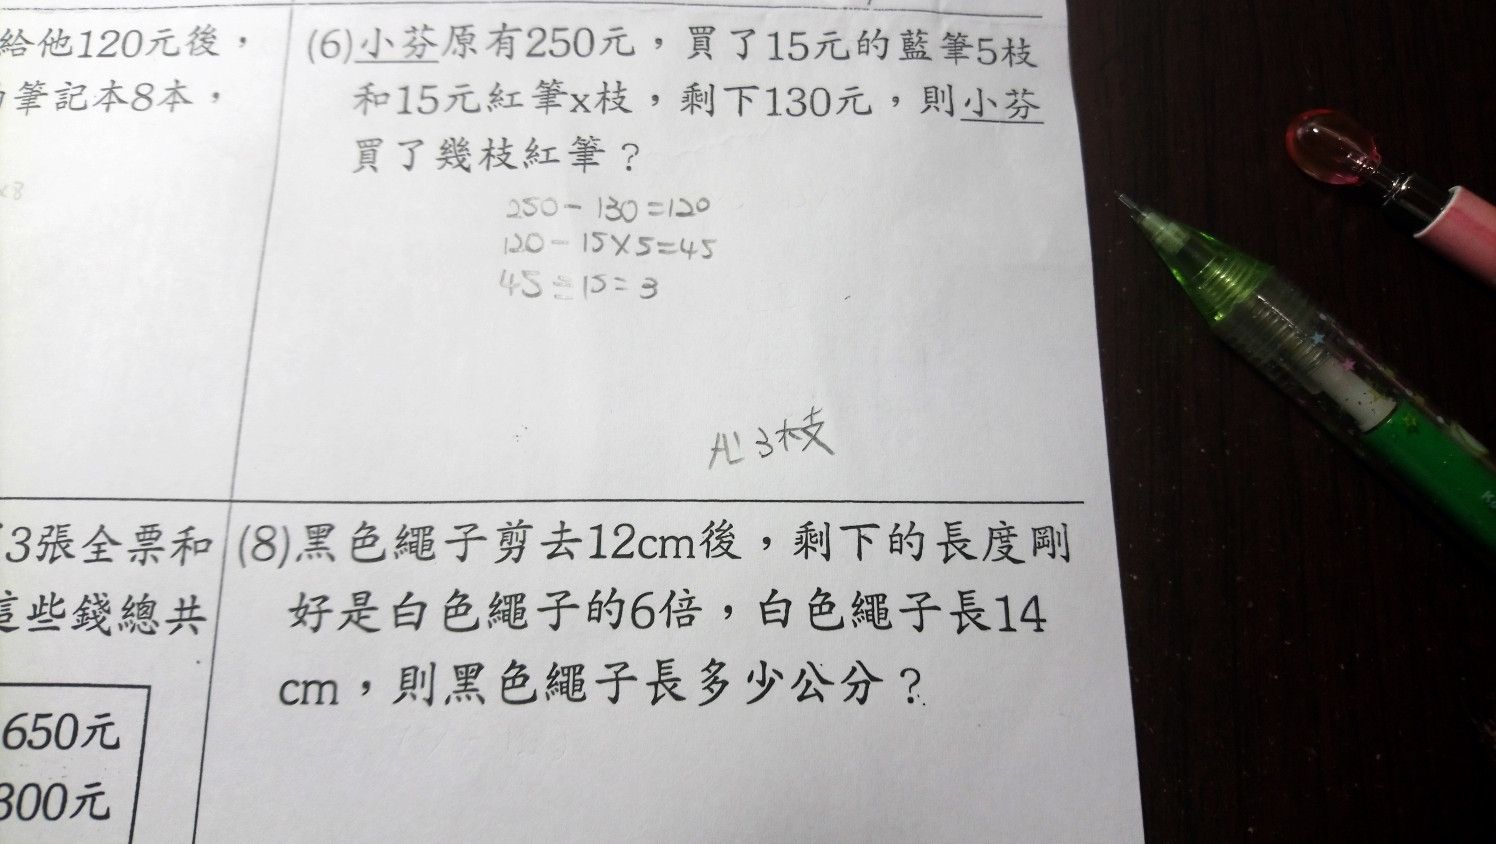 給他120元後，
筆記本8本，
×8
(6)小芬原有250元，買了15元的藍筆5枝
和15元紅筆x枝，剩下130元，則小芬
買了幾枝紅筆？
250－130＝120
120－15×5＝45
45÷15＝3
A:3枝
3張全票和
這些錢總共
650元
300元
(8)黑色繩子剪去12cm後，剩下的長度剛
好是白色繩子的6倍，白色繩子長14
cm，則黑色繩子長多少公分？